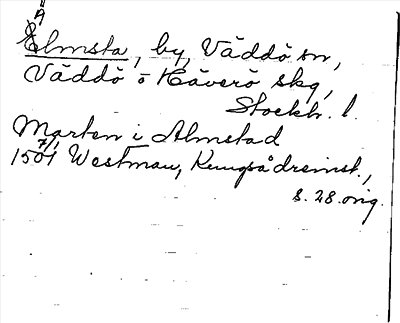 Älmsta, by, Väddö sn,
Väddö o Häverö skg,
Stockh. l.
Marten i Almstad
1501 7/1 Westman, Kungsådreinst.,
s. 28. orig.